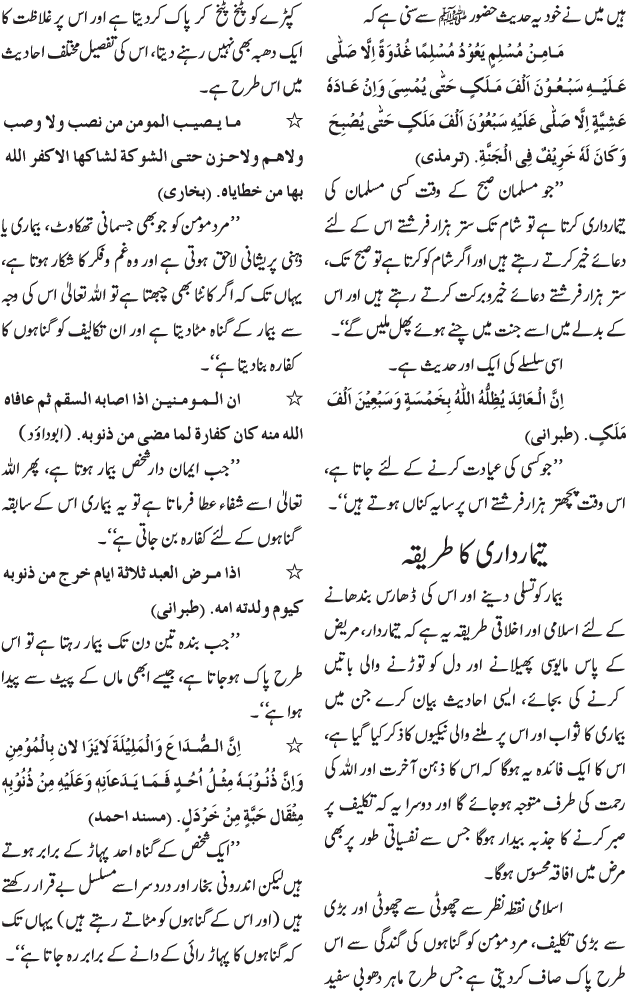 ہیں میں نے خود یہ حدیث حضور ﷺ سے سنی ہے کہ
مَامِنْ مُسْلِمٍ یَعُوْدُ مُسْلِمًا غُدْوَۃً اِلَّا صَلّٰی
عَلَیْہِ سَبْعُوْنَ اَلْفَ مَلَکٍ حَتّٰی یُمْسِیَ وَاِنْ عَادَہٗ
عَشِیَّۃً اِلَّا صَلّٰی عَلَیْہِ سَبْعُوْنَ اَلْفَ مَلَکٍ حَتّٰی یُصْبِحَ
وَکَانَ لَہٗ خَرِیْفٌ فِی الْجَنَّۃِ۔ (ترمذی)
’’جو مسلمان صبح کے وقت کسی مسلمان کی
تیمارداری کرتا ہے تو شام تک ستر ہزار فرشتے اس کے لئے
دعائے خیر کرتے رہتے ہیں اور اگر شام کو کرتا ہے تو صبح تک،
ستر ہزار فرشتے دعائے خیر و برکت کرتے رہتے ہیں اور اس
کے بدلے میں اسے جنت میں چنے ہوئے پھل ملیں گے‘‘۔
اسی سلسلے کی ایک اور حدیث ہے۔
اِنَّ الْعَائِدَ یُظِلُّہُ اللّٰہُ بِخَمْسَۃٍ وَسَبْعِیْنَ اَلْفَ
مَلَکٍ۔ (طبرانی)
’’جو کسی کی عیادت کرنے کے لئے جاتا ہے،
اس وقت پچھتر ہزار فرشتے اس پر سایہ کناں ہوتے ہیں‘‘۔
تیمارداری کا طریقہ
بیمار کو تسلی دینے اور اس کی ڈھارس بندھانے
کے لئے اسلامی اور اخلاقی طریقہ یہ ہے کہ تیماردار، مریض
کے پاس مایوسی پھیلانے اور دل کو توڑنے والی باتیں
کرنے کی بجائے، ایسی احادیث بیان کرے جن میں
بیماری کا ثواب اور اس پر ملنے والی نیکیوں کا ذکر کیا گیا ہے،
اس کا ایک فائدہ یہ ہوگا کہ اس کا ذہن آخرت اور اللہ کی
رحمت کی طرف متوجہ ہوجائے گا اور دوسرا یہ کہ تکلیف پر
صبر کرنے کا جذبہ بیدار ہوگا جس سے نفسیاتی طور پر بھی
مرض میں افاقہ محسوس ہوگا۔
اسلامی نقطہ نظر سے چھوٹی سے چھوٹی اور بڑی
سے بڑی تکلیف، مرد مومن کو گناہوں کی گندگی سے اس
طرح پاک صاف کردیتی ہے جس طرح ماہر دھوبی سفید
کپڑے کو پٹخ پٹخ کر پاک کردیتا ہے اور اس پر غلاظت کا
ایک دھبہ بھی نہیں رہنے دیتا، اس کی تفصیل مختلف احادیث
میں اس طرح ہے۔
☆ ما یصیب المومن من نصب ولا وصب
ولاهم ولاحزن حتی الشوکة لشاکها الاکفر الله
بها من خطایاه۔ (بخاری)
’’مرد مومن کو جو بھی جسمانی تھکاوٹ، بیماری یا
ذہنی پریشانی لاحق ہوتی ہے اور وہ غم وفکر کا شکار ہوتا ہے،
یہاں تک کہ اگر کانٹا بھی چبھتا ہے تو اللہ تعالیٰ اس کی وجہ
سے بیمار کے گناہ مٹا دیتا ہے اور ان تکالیف کو گناہوں کا
کفارہ بنا دیتا ہے‘‘۔
☆ ان المومنین اذا اصابه السقم ثم عافاه
الله منه کان کفارة لما مضی من ذنوبه۔ (ابوداؤد)
’’جب ایمان دار شخص بیمار ہوتا ہے، پھر اللہ
تعالیٰ اسے شفاء عطا فرماتا ہے تو یہ بیماری اس کے سابقہ
گناہوں کے لئے کفارہ بن جاتی ہے‘‘۔
☆ اذا مرض العبد ثلاثة ایام خرج من ذنوبه
کیوم ولدته امه۔ (طبرانی)
’’جب بندہ تین دن تک بیمار رہتا ہے تو اس
طرح پاک ہوجاتا ہے، جیسے ابھی ماں کے پیٹ سے پیدا
ہوا ہے‘‘۔
☆ اِنَّ الصُّدَاعَ وَالْمَلِیْلَةَ لَایَزَا لان بِالْمُؤْمِنِ
وَاِنَّ ذُنُوْبَهٗ مِثْلُ اُحُدٍ فَمَا یَدعَانِهٖ وَعَلَیْهِ مِنْ ذُنُوْبِهٖ
مِثْقَالُ حَبَّةٍ مِنْ خَرْدَلٍ۔ (مسند احمد)
’’ایک شخص کے گناہ احد پہاڑ کے برابر ہوتے
ہیں لیکن اندرونی بخار اور درد سر اسے مسلسل بے قرار رکھتے
ہیں (اور اس کے گناہوں کو مٹاتے رہتے ہیں) یہاں تک
کہ گناہوں کا پہاڑ رائی کے دانے کے برابر رہ جاتا ہے‘‘۔